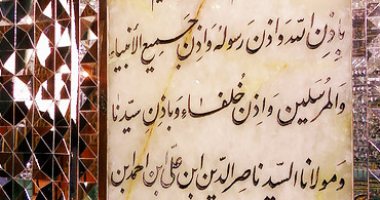 بإذن الله واذن رسوله واذن جميع الأنبياء
والمرسلين واذن خلفاء وباذن سيدنا
ومولانا السيد ناصر الدين ابن علي ابن احمد ابن